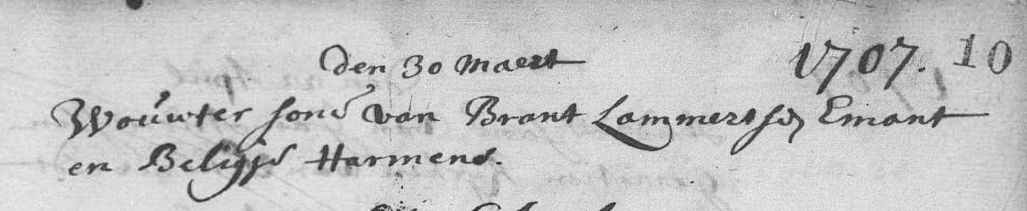 den 30 Maert 1707. 10
Wouwter sone van Brant Lammertsen Emant
en Beligje Harmens.